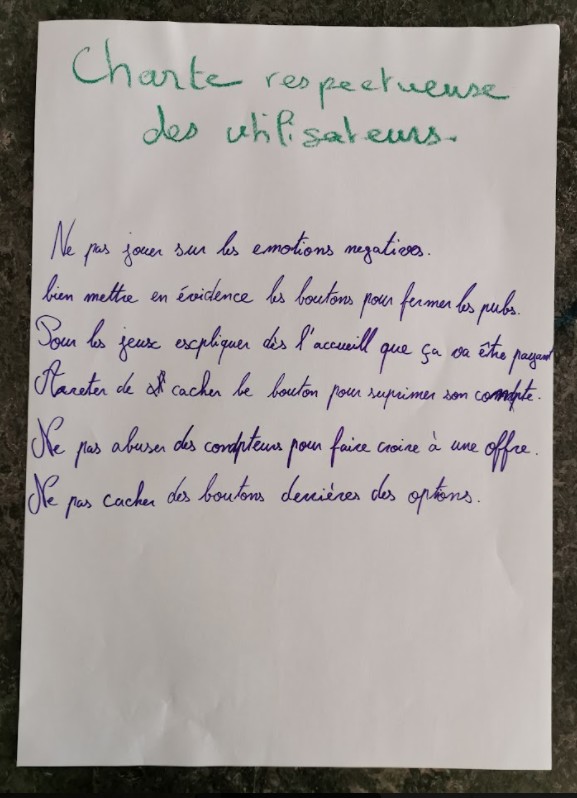 Charte respectueuse
des utilisateurs.
Ne pas jouer sur les emotions negatives.
bien mettre en évidence les boutons pour fermer les pubs.
Pour les jeux escpliquer dès l'accueill que ça va être payant
Arreter de cacher le bouton pour suprimer son comdpte.
Ne pas abuser des comdpteurs pour faire croire à une offre.
Ne pas cacher des boutons derrières des options.